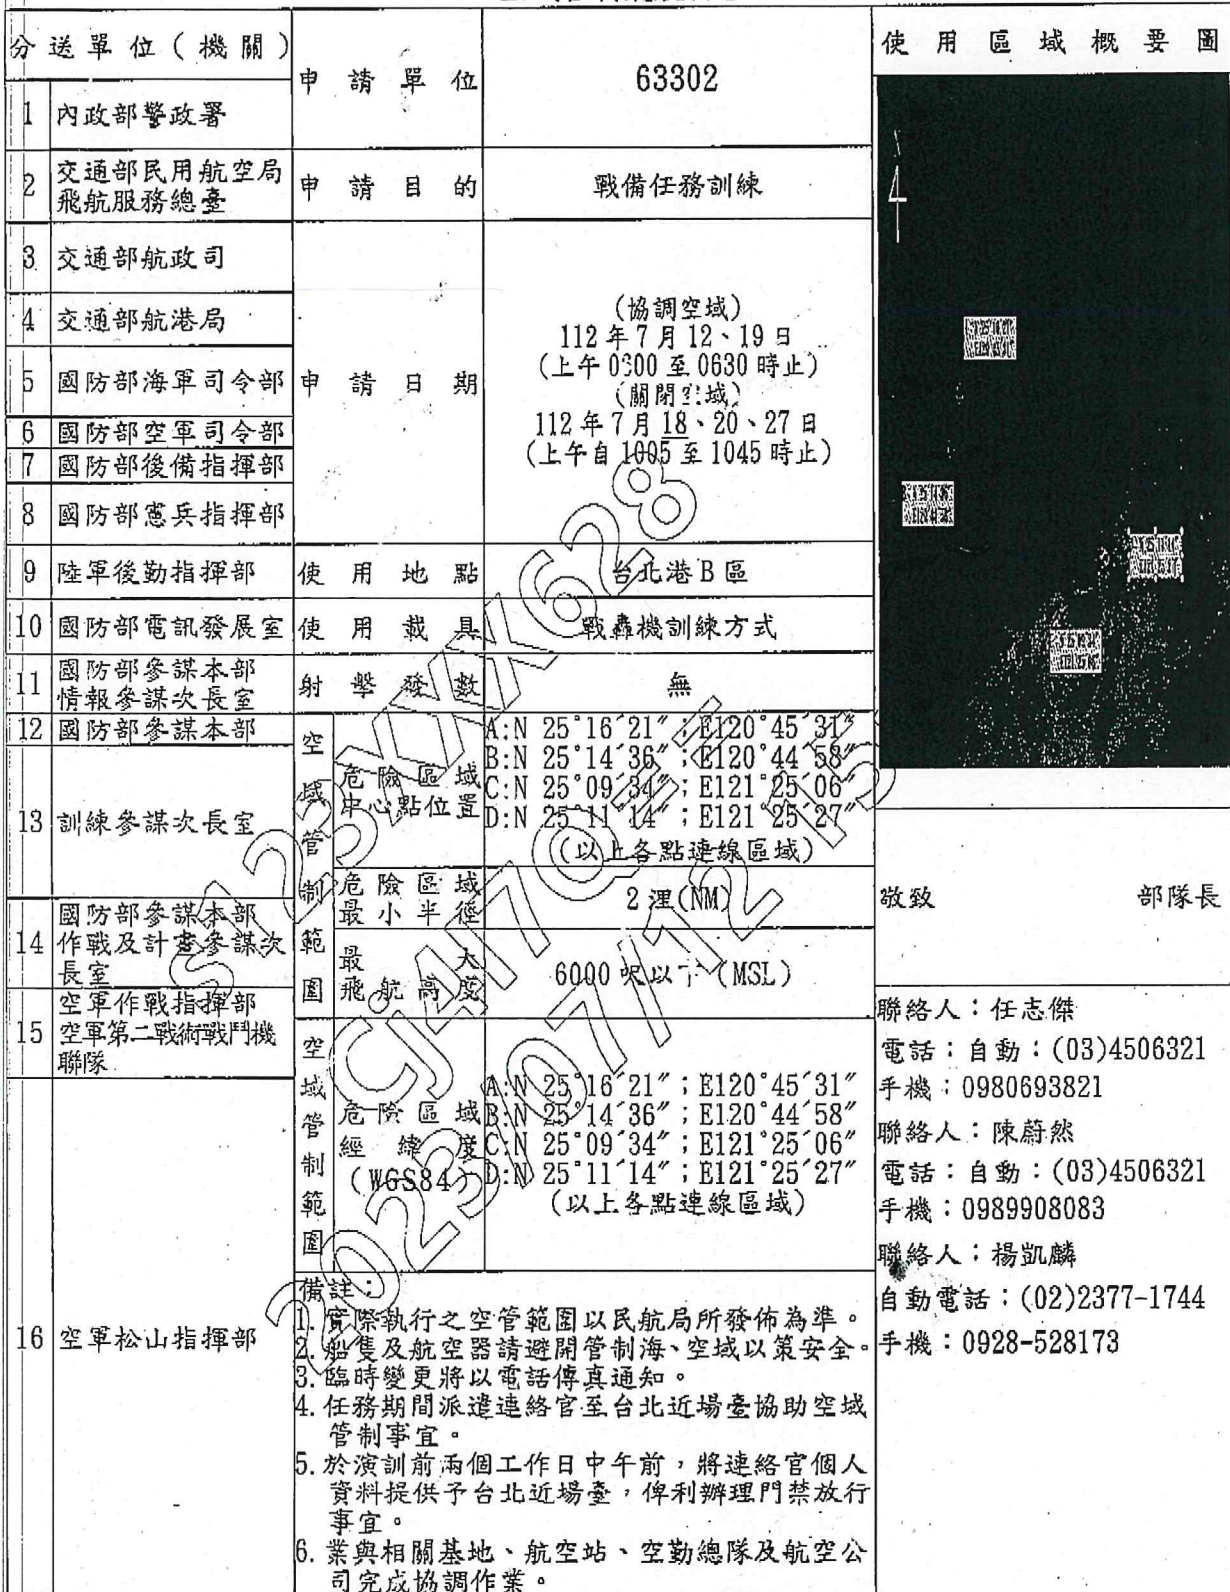 分送單位(機關)
1 內政部警政署
2 交通部民用航空局
飛航服務總臺
3 交通部航政司
4 交通部航港局
5 國防部海軍司令部
6 國防部空軍司令部
7 國防部後備指揮部
8 國防部憲兵指揮部
9 陸軍後勤指揮部
10 國防部電訊發展室
11 國防部參謀本部
情報參謀次長室
12 國防部參謀本部
13 訓練參謀次長室
14 國防部參謀本部
作戰及計畫參謀次
長室
15 空軍作戰指揮部
空軍第二戰術戰鬥機
聯隊
16 空軍松山指揮部
申請單位 63302
申請目的 戰備任務訓練
申請日期
(協調空域)
112年7月12、19日
(上午0300至0630時止)
(關閉空域)
112年7月18、20、27日
(上午自1005至1045時止)
使用地點 台北港B區
使用載具 戰轟機訓練方式
射擊發數 無
空域管制範圍
危險區域
中心點位置
A:N 25°16′21″;E120°45′31″
B:N 25°14′36″;E120°44′58″
C:N 25°09′34″;E121°25′06″
D:N 25°11′14″;E121°25′27″
(以上各點連線區域)
危險區域
最小半徑
2浬(NM)
最大
飛航高度
6000呎以下(MSL)
空域管制範圍
危險區域
經緯度
(WGS84)
A:N 25°16′21″;E120°45′31″
B:N 25°14′36″;E120°44′58″
C:N 25°09′34″;E121°25′06″
D:N 25°11′14″;E121°25′27″
(以上各點連線區域)
備註:
1.實際執行之空管範圍以民航局所發佈為準。
2.船隻及航空器請避開管制海、空域以策安全。
3.臨時變更將以電話傳真通知。
4.任務期間派遣連絡官至台北近場臺協助空域
管制事宜。
5.於演訓前兩個工作日中午前,將連絡官個人
資料提供予台北近場臺,俾利辦理門禁放行
事宜。
6.業與相關基地、航空站、空勤總隊及航空公
司完成協調作業。
使用區域概要圖
敬致 部隊長
聯絡人:任志傑
電話:自動:(03)4506321
手機:0980693821
聯絡人:陳蔚然
電話:自動:(03)4506321
手機:0989908083
聯絡人:楊凱麟
自動電話:(02)2377-1744
手機:0928-528173
s123XXX628